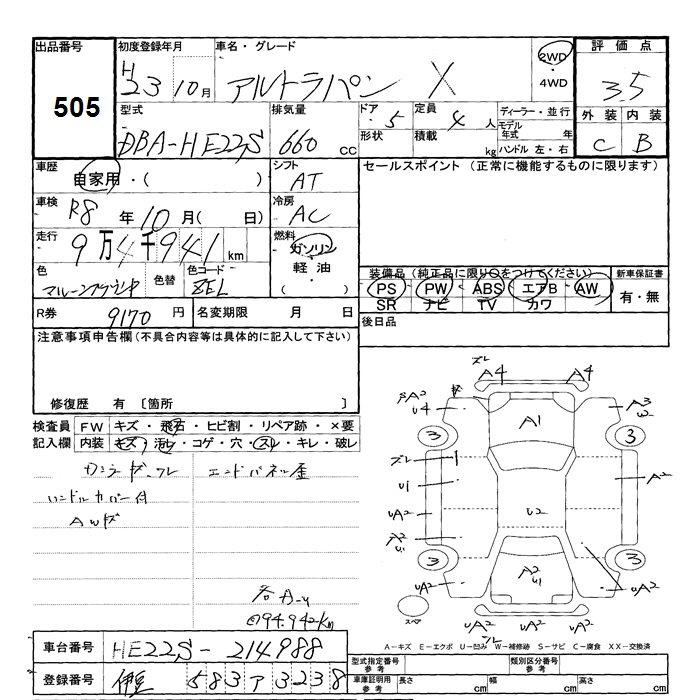 出品番号 初度登録年月 車名・グレード 2WD 評価点
505 H23 10月 アルトラパン X ・4WD 3.5
型式 排気量 ドア 5 定員 4人 ディーラー・並行 外装 内装
DBA-HE22S 660cc 形状 積載 kg モデル年式 年 C B
ハンドル 左・右
車歴 自家用・( ) シフト AT セールスポイント (正常に機能するものに限ります)
車検 R8年10月( 日) 冷房 AC
走行 9万4千941km 燃料 ガソリン
軽油・( )
色 色替 色コード ZEL
装備品 (純正品に限り○をつけてください) 新車保証書
PS PW ABS エアB AW 有・無
SR ナビ TV カワ
R券 9170円 名変期限 月 日 後日品
注意事項申告欄(不具合内容等は具体的に記入して下さい)
修復歴 有 〔箇所 〕
検査員記入欄 FW キズ・飛石・ヒビ割・リペア跡・×要
内装 キズ・汚レ・コゲ・穴・スレ・キレ・破レ
エンドパネル歪
ハンドルカバー付
AWキズ
94.942km
ズレ
A4 A4
A1
U4 A3
3 3
ズレ
U1 A2
UA2 U2
A2
U1
3 3
A2
U1
UA2 UA2
スペア UA2 UA2
A-キズ E-エクボ U-凹み W-補修跡 S-サビ C-腐食 XX-交換済
車台番号 HE22S-214988
登録番号 伊豆 583 ア 3238
型式指定番号 参考 類別区分番号 参考
車庫証明用 参考 長さ cm 幅 cm 高さ cm